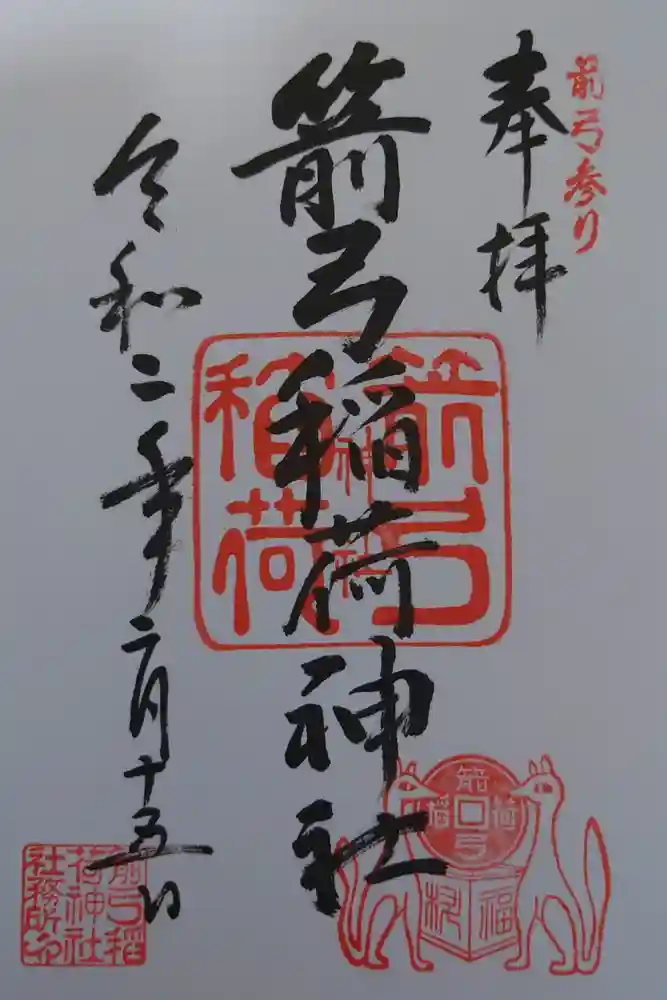 箭弓参り
奉拝
箭弓稲荷神社
令和二年二月十五日
箭弓
稲荷
神社
箭弓稲
荷神社
社務所印
箭弓稲荷
福